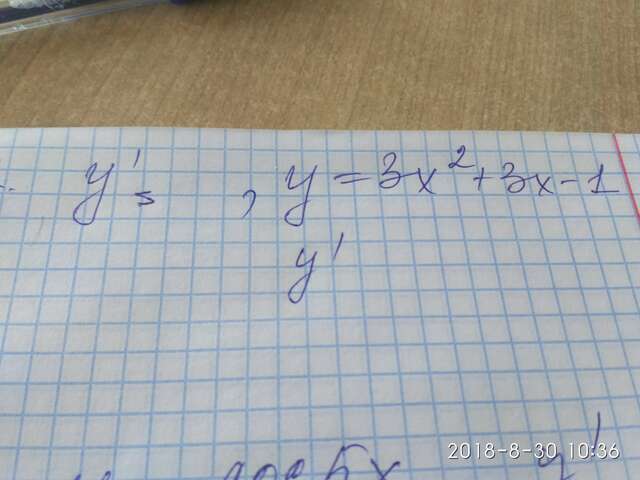 y' = , y = 3x² + 3x - 1
y'
y'
2018-8-30 10:36